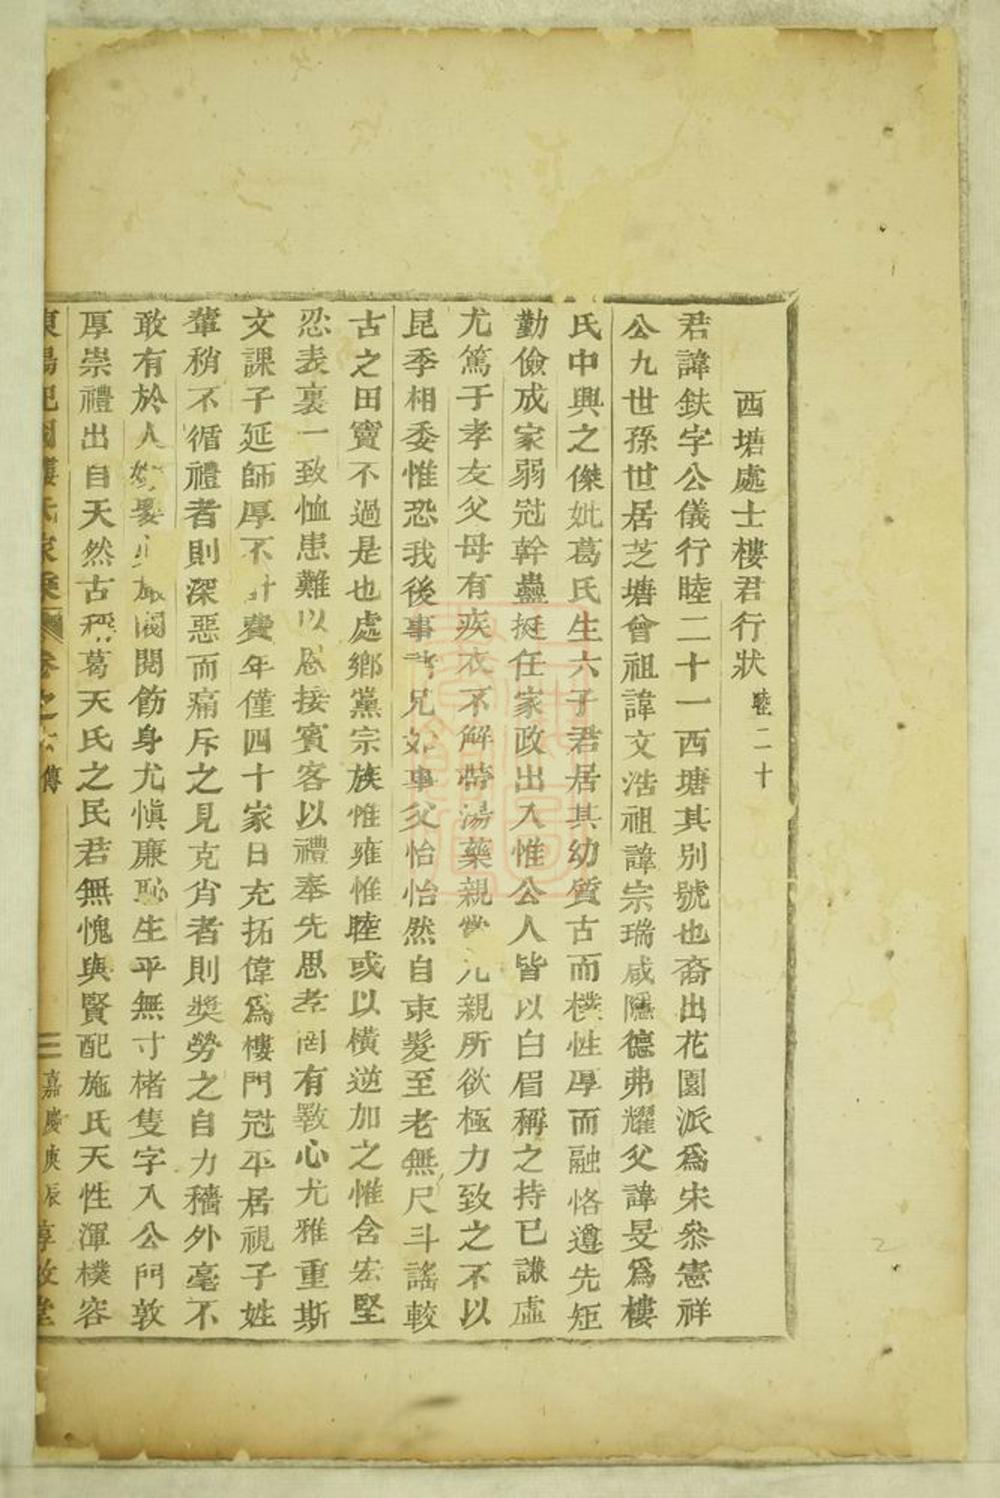 西塘處士樓君行狀 睦二十
君諱鈇字公儀行睦二十一西塘其别號也裔出花園派爲宋叅憲祥
公九世孫世居芝塘曾祖諱文浩祖諱宗瑞咸隱德弗耀父諱旻爲樓
氏中興之傑妣葛氏生六子君居其幼質古而樸性厚而融恪遵先矩
勤儉成家弱冠幹蠱挺任家政出入惟公人皆以白眉稱之持已謙虛
尤篤于孝友父母有疾衣不解帶湯藥親嘗凡親所欲極力致之不以
昆季相委惟恐我後事諸兄如事父怡怡然自束髮至老無尺斗謠較
古之田竇不過是也處鄉黨宗族惟雍惟睦或以橫逆加之惟含宏堅
忍表裏一致恤患難以恩接賓客以禮奉先思孝罔有斁心尤雅重斯
文課子延師厚不計費年僅四十家日充拓偉爲樓門冠平居視子姓
輩稍不循禮者則深惡而痛斥之見克肖者則奬勞之自力穡外毫不
敢有於人閥閱飭身尤愼廉恥生平無寸楮隻字入公門敦
厚崇禮出自天然古稱葛天氏之民君無愧與賢配施氏天性渾樸容
東陽杞國樓氏家乘 卷之六傳 三 嘉慶庚辰 惇敘堂